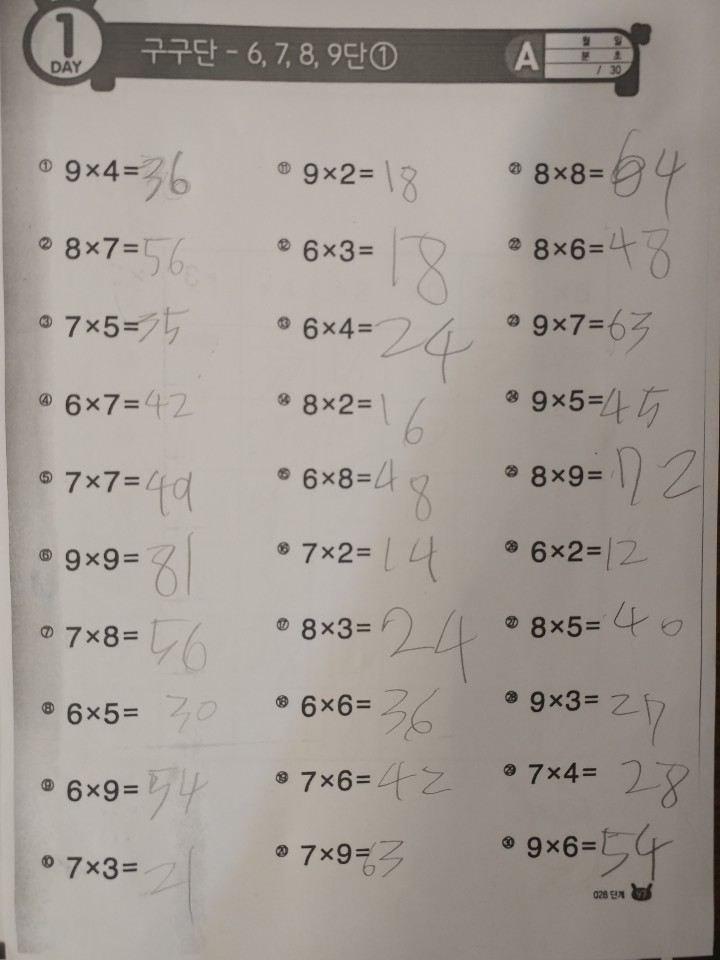 1 DAY
구구단 - 6, 7, 8, 9단①
A
월 일
분 초
/ 30
① 9×4=36
② 8×7=56
③ 7×5=35
④ 6×7=42
⑤ 7×7=49
⑥ 9×9=81
⑦ 7×8=56
⑧ 6×5=30
⑨ 6×9=54
⑩ 7×3=21
⑪ 9×2=18
⑫ 6×3=18
⑬ 6×4=24
⑭ 8×2=16
⑮ 6×8=48
⑯ 7×2=14
⑰ 8×3=24
⑱ 6×6=36
⑲ 7×6=42
⑳ 7×9=63
㉑ 8×8=64
㉒ 8×6=48
㉓ 9×7=63
㉔ 9×5=45
㉕ 8×9=72
㉖ 6×2=12
㉗ 8×5=40
㉘ 9×3=27
㉙ 7×4=28
㉚ 9×6=54
026 단계